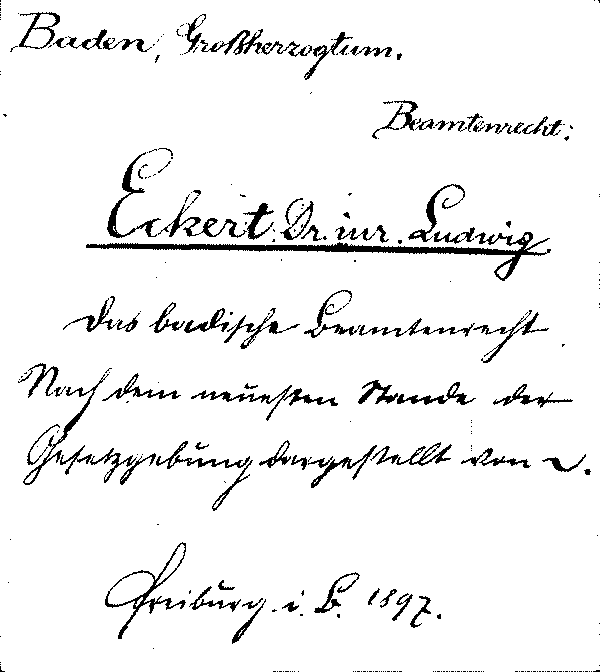 Baden, Großherzogtum.
Beamtenrecht:
Eckert, Dr. iur. Ludwig
Das badische Beamtenrecht
Nach dem neuesten Stande der
Gesetzgebung dargestellt von ~.
Freiburg i. B. 1897.